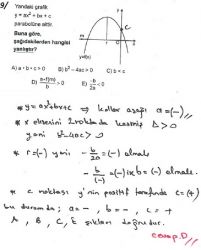 9/ Yandaki grafik
y = ax² + bx + c
parabolüne aittir.
Buna göre,
aşağıdakilerden hangisi
yanlıştır?
A) a + b + c > 0 B) b² - 4ac > 0 C) b < c
E) -b/2a < 0
* y = ax² + bx + c ⇒ kollar aşağı a = (-)
* x eksenini 2 noktada kesmiş Δ > 0
yani b² - 4ac > 0
* r = (-) yani -b/2a = (-) olmalı
-b/(-) = (-) ise b = (-) olmalı.
* c noktası y'nin pozitif tarafında c = (+)
bu durumda; a = - , b = - , c = +
A, B, C, E şıkları doğrudur.
cevap D